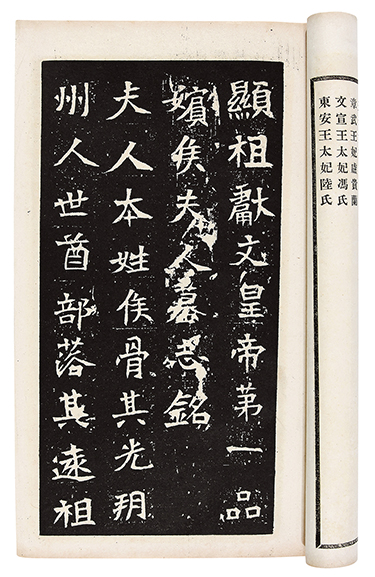 章武王妃盧貴蘭
文宣王太妃馮氏
東安王太妃陸氏
顯祖獻文皇帝第一品
嬪侯夫人墓志銘
夫人本姓侯骨其先朔
州人世酋部落其遠祖